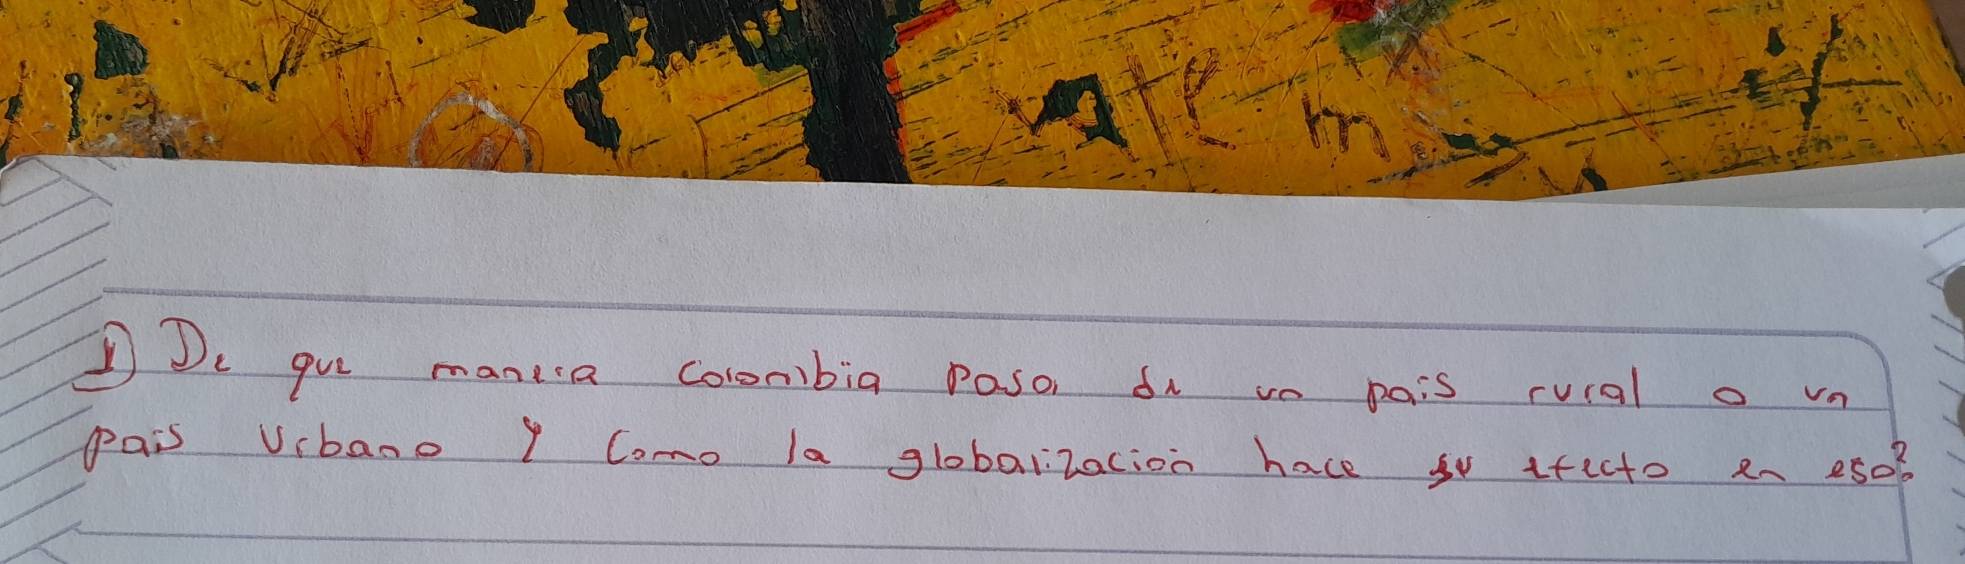 vale m
1) De que manera Colombia Pasa de un pais rural a un
pais Urbano Y Como la globalización hace su efecto en eso?